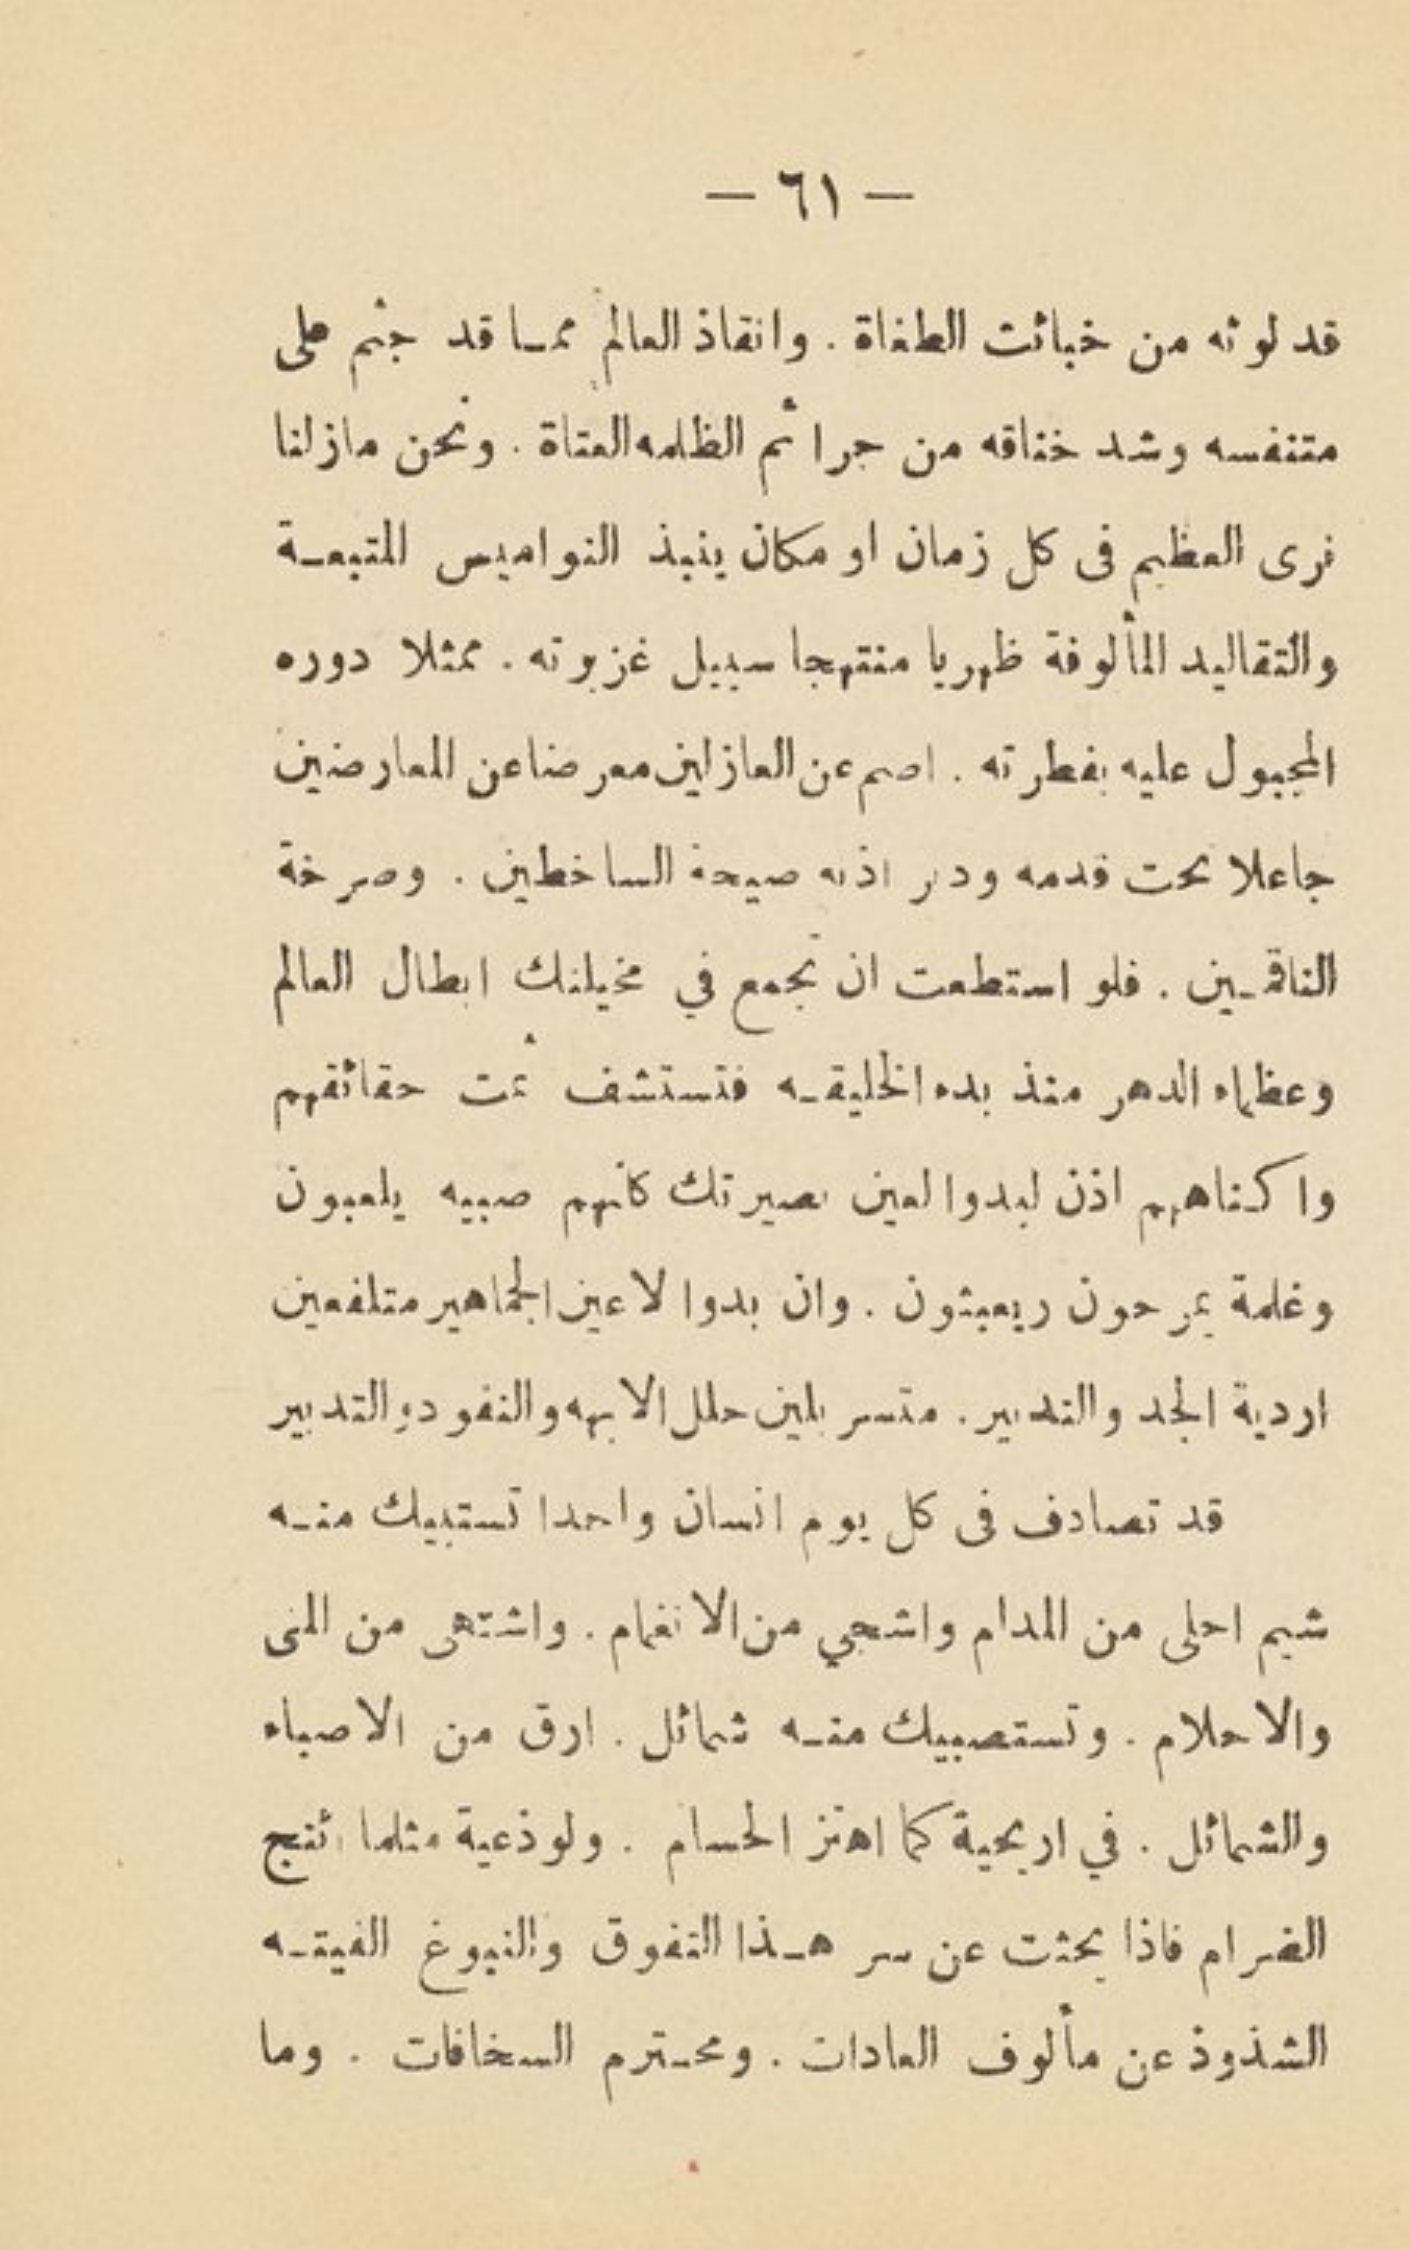 — ٦١ —
قد لوثه من خبائث الطغاة . وانقاذ العالم ممـا قد جثم على
متنفسه وشد خناقه من جرائم الظلمه العتاة . ونحن مازلنا
نرى العظيم فى كل زمان او مكان ينبذ النواميس المتبعـة
والتقاليد المألوفة ظهريا منتهجا سبيل غزيرته . ممثلا دوره
المجبول عليه بفطرته . اصم عن العازلين معرضا عن المعارضين
جاعلا تحت قدمه ودبر اذنه صيحة الساخطين . وصرخة
الناقمـين . فلو استطعت ان تجمع في مخيلتك ابطال العالم
وعظماء الدهر منذ بدء الخليقـه فتستشف ثمت حقائقهم
واكـناههم اذن لبدوا لعين بصيرتك كانهم صبيه يلعبون
وغلمة يمرحون ويعبثون . وان بدوا لاعين الجماهير متلفعين
اردية الجد والتدبير . متسربلين حلل الابهه والنفود والتدبير
قد تصادف فى كل يوم انسان واحدا تستبيك منـه
شيم احلى من المدام واشجي من الانغام . واشتهى من المنى
والاحلام . وتستصبيك منـه شمائل . ارق من الاصباء
والشمائل . في اريحية كما اهتز الحسام . ولوذعية مثلما ائتج
الضرام فاذا بحثت عن سر هـذا التفوق والنبوغ الفيتـه
الشذوذ عن مألوف العادات . ومحـترم السخافات . وما